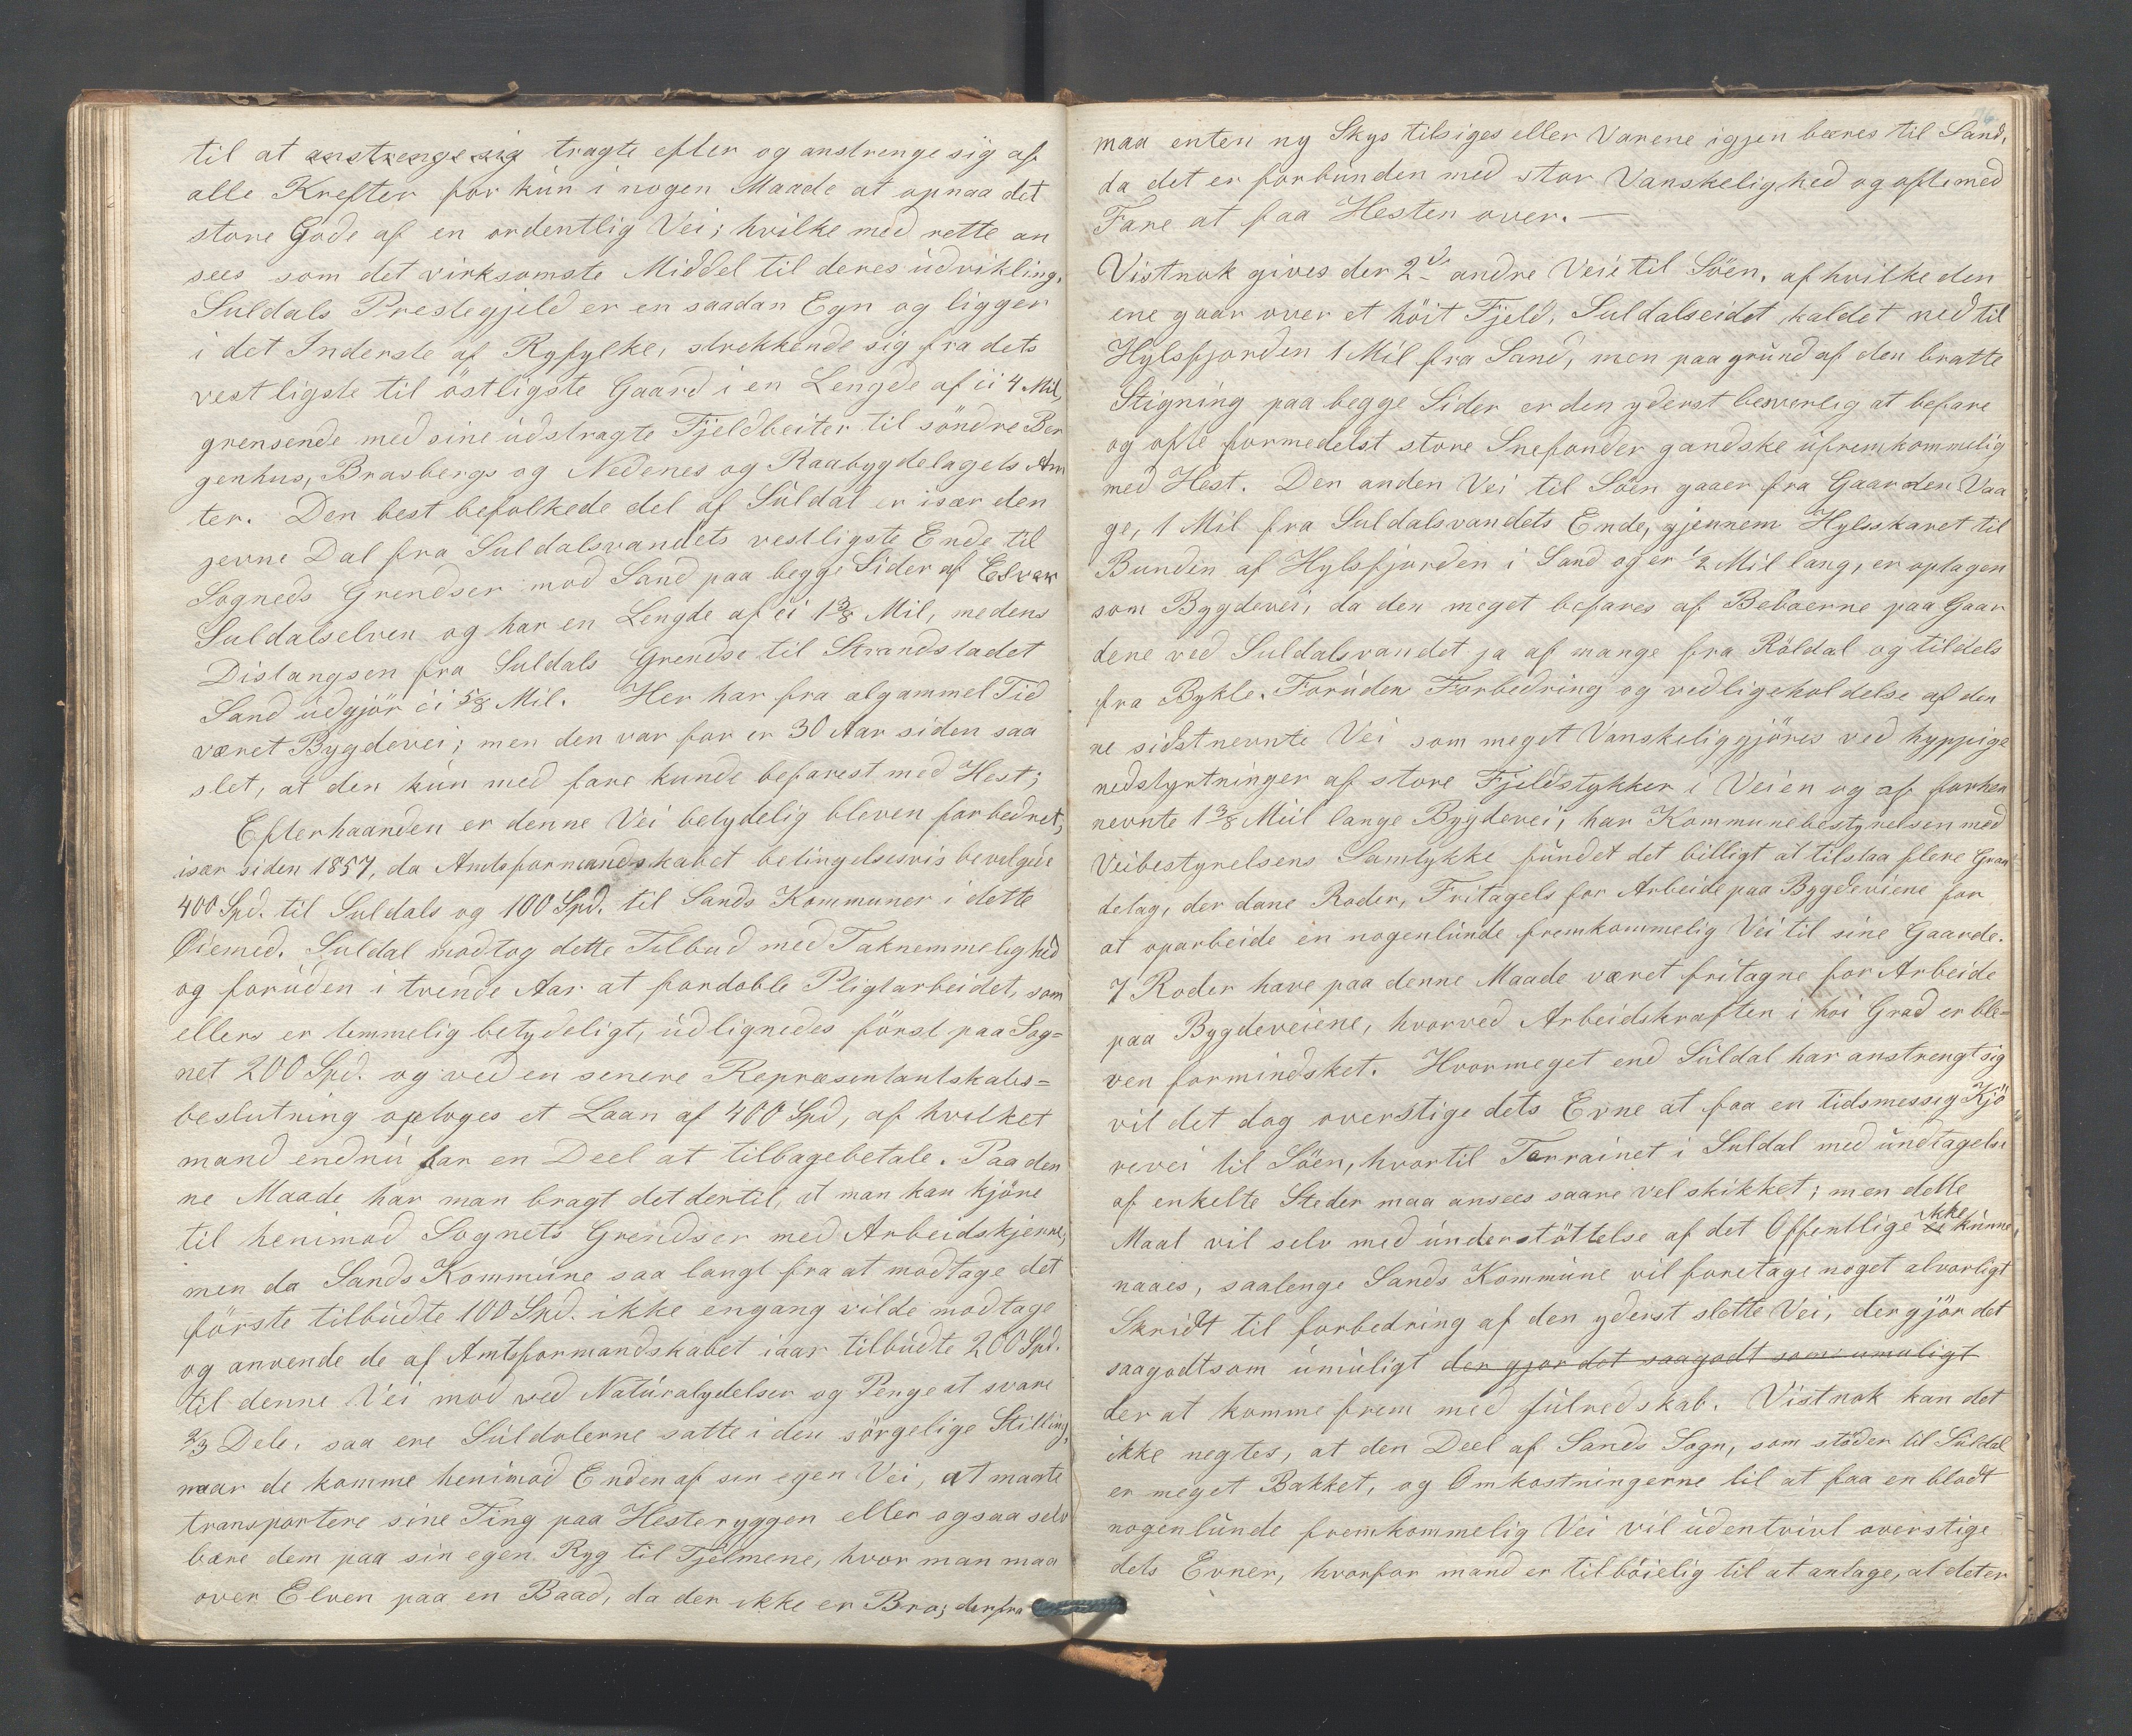 til at anstrenge sig tragte efter og anstrenge sig af
alle Krefter for kun i nogen Maade at opnaa det
store Gode af en ordentlig Vei; hvilke med rette an
sees som det virksomste Middel til deres udvikling.
Suldals Prestegjeld er en saadan Egn og ligger
i det Inderste af Ryfylke, strekkende sig fra dets
vestligste til östligste Gaard i en Lengde af ii 4 Mil,
grensende med sine udstragte Fjeldbeiter til söndre Ber
genhus, Brasbergs og Nedenes og Raabygdelagets Am
ter. Den best befolkede del af Suldal er især den
jevne Dal fra Suldalsvandets vestligste Ende til
Sogneds Grendser mod Sand paa begge Sider af Elven
Suldalselven og har en Lengde af ii 1 3/8 Mil, medens
Distangsen fra Suldals Grendse til Strandstadet
Sand udgjör ii 5/8 Mil. Her har fra algammel Tid
været Bygdevei; men den var for er 30 Aar siden saa
slet, at den kun med fare kunde befarest med Hest;
Efterhaanden er denne Vei betydelig bleven forbedret,
især siden 1857, da Amtsformandskabet betingelsesvis bevilgede
400 Spd. til Suldals og 100 Spd. til Sands Kommuner i dette
Øiemed. Suldal modtog dette Tilbud med Taknemmelighed
og foruden i trende Aar at fordoble Pligtarbeidet, som
ellers er temmelig betydeligt, udlignedes först paa Sog=
net 200 Spd. og ved en senere Repræsentantskabs=
beslutning optoges et Laan af 400 Spd, af hvilket
mand endnu har en Deel at tilbagebetale. Paa den
ne Maade har man bragt det dertil, at man kan kjöre
til henimod Sognets Grendser med Arbeidskjerre,
men da Sands Kommune saa langt fra at modtage det
förste tilbudte 100 Spd. ikke engang vilde modtage
og anvende de af Amtsformandskabet iaar tilbudte 200 Spd.
til denne Vei mod ved Naturalydelser og Penge at svare
2/3 Dele, saa ere Suldolerne satte i den sörgelige Stilling,
naar de komme henimod Enden af sin egen Vei, at maate
transportere sine Ting paa Hesteryggen eller ogsaa selv
bære dem paa sin egen Ryg til Tjelmene, hvor man maa
over Elven paa en Baad, da der ikke er Bro; derfra
maa enten ny Skys tilsiges eller Varene igjen bæres til Sand,
da det er forbunden med stor Vanskelighed og ofte med
Fare at faa Hesten over.—
Vistnok gives der 2de andre Veie til Söen, af hvilke den
ene gaar over et höit Fjeld, Suldalseidet kaldet ned til
Hylsfjorden 1 Mil fra Sand, men paa grund af den bratte
Stigning paa begge Sider er den yderst besverlig at befare
og ofte formedelst store Snefonder gandske ufremkommelig
med Hest. Den anden Vei til Söen gaaer fra Gaarden Vaa
ge, 1 Mil fra Suldalsvandets Ende, gjennem Hylsskaret til
Bunden af Hylsfjorden i Sand og er 1/2 Mil lang, er optagen
som Bygdevei, da den meget befares af Beboerne paa Gaar
dene ved Suldalsvandet ja af mange fra Röldal og tildels
fra Bykle. Foruden Forbedring og vedligeholdelse af den
ne sidstnevnte Vei som meget Vanskeliggjöres ved hyppige
nedstyrtninger af store Fjeldstykker i Veien og af forhen
nevnte 1 3/8 Miil lange Bygdevei, har Kommunebestyrelsen med
Veibestyrelsens Samtykke fundet det billigt at tilstaa flere Gran
delag, der dane Roder, Fritagels for Arbeide paa Bygdeveiene for
at oparbeide en nogenlunde fremkommelig Vei til sine Gaarde.
7 Roder have paa denne Maade været fritagne for Arbeide
paa Bygdeveiene, hvorved Arbeidskraften i höi Grad er ble=
ven formindsket. Hvormeget end Suldal har anstrengt sig
vil det dog overstige dets Evne at faa en tidsmessig Kjö
revei til Söen, hvortil Terrainet i Suldal med undtagelse
af enkelte Steder maa ansees saare vel skikket; men dette
Maal vil selv med understöttelse af det Offentlige ei ikke kunne
naaes, saalenge Sands Kommune vil foretage noget alvorligt
Skridt til forbedring af den yderst slette Vei, der gjör det
saagodtsom umuligt der gjor det saagodt som umuligt
der at komme frem med Julredskab. Vistnok kan det
ikke negtes, at den Deel af Sands Sogn, som stöder til Suldal
er meget Bakket, og Omkostningerne til at faa en blodt
nogenlunde fremkommelig Vei vil udentvivl overstige
dets Evner, hvorfor mand er tilböielig til at antage, at det er